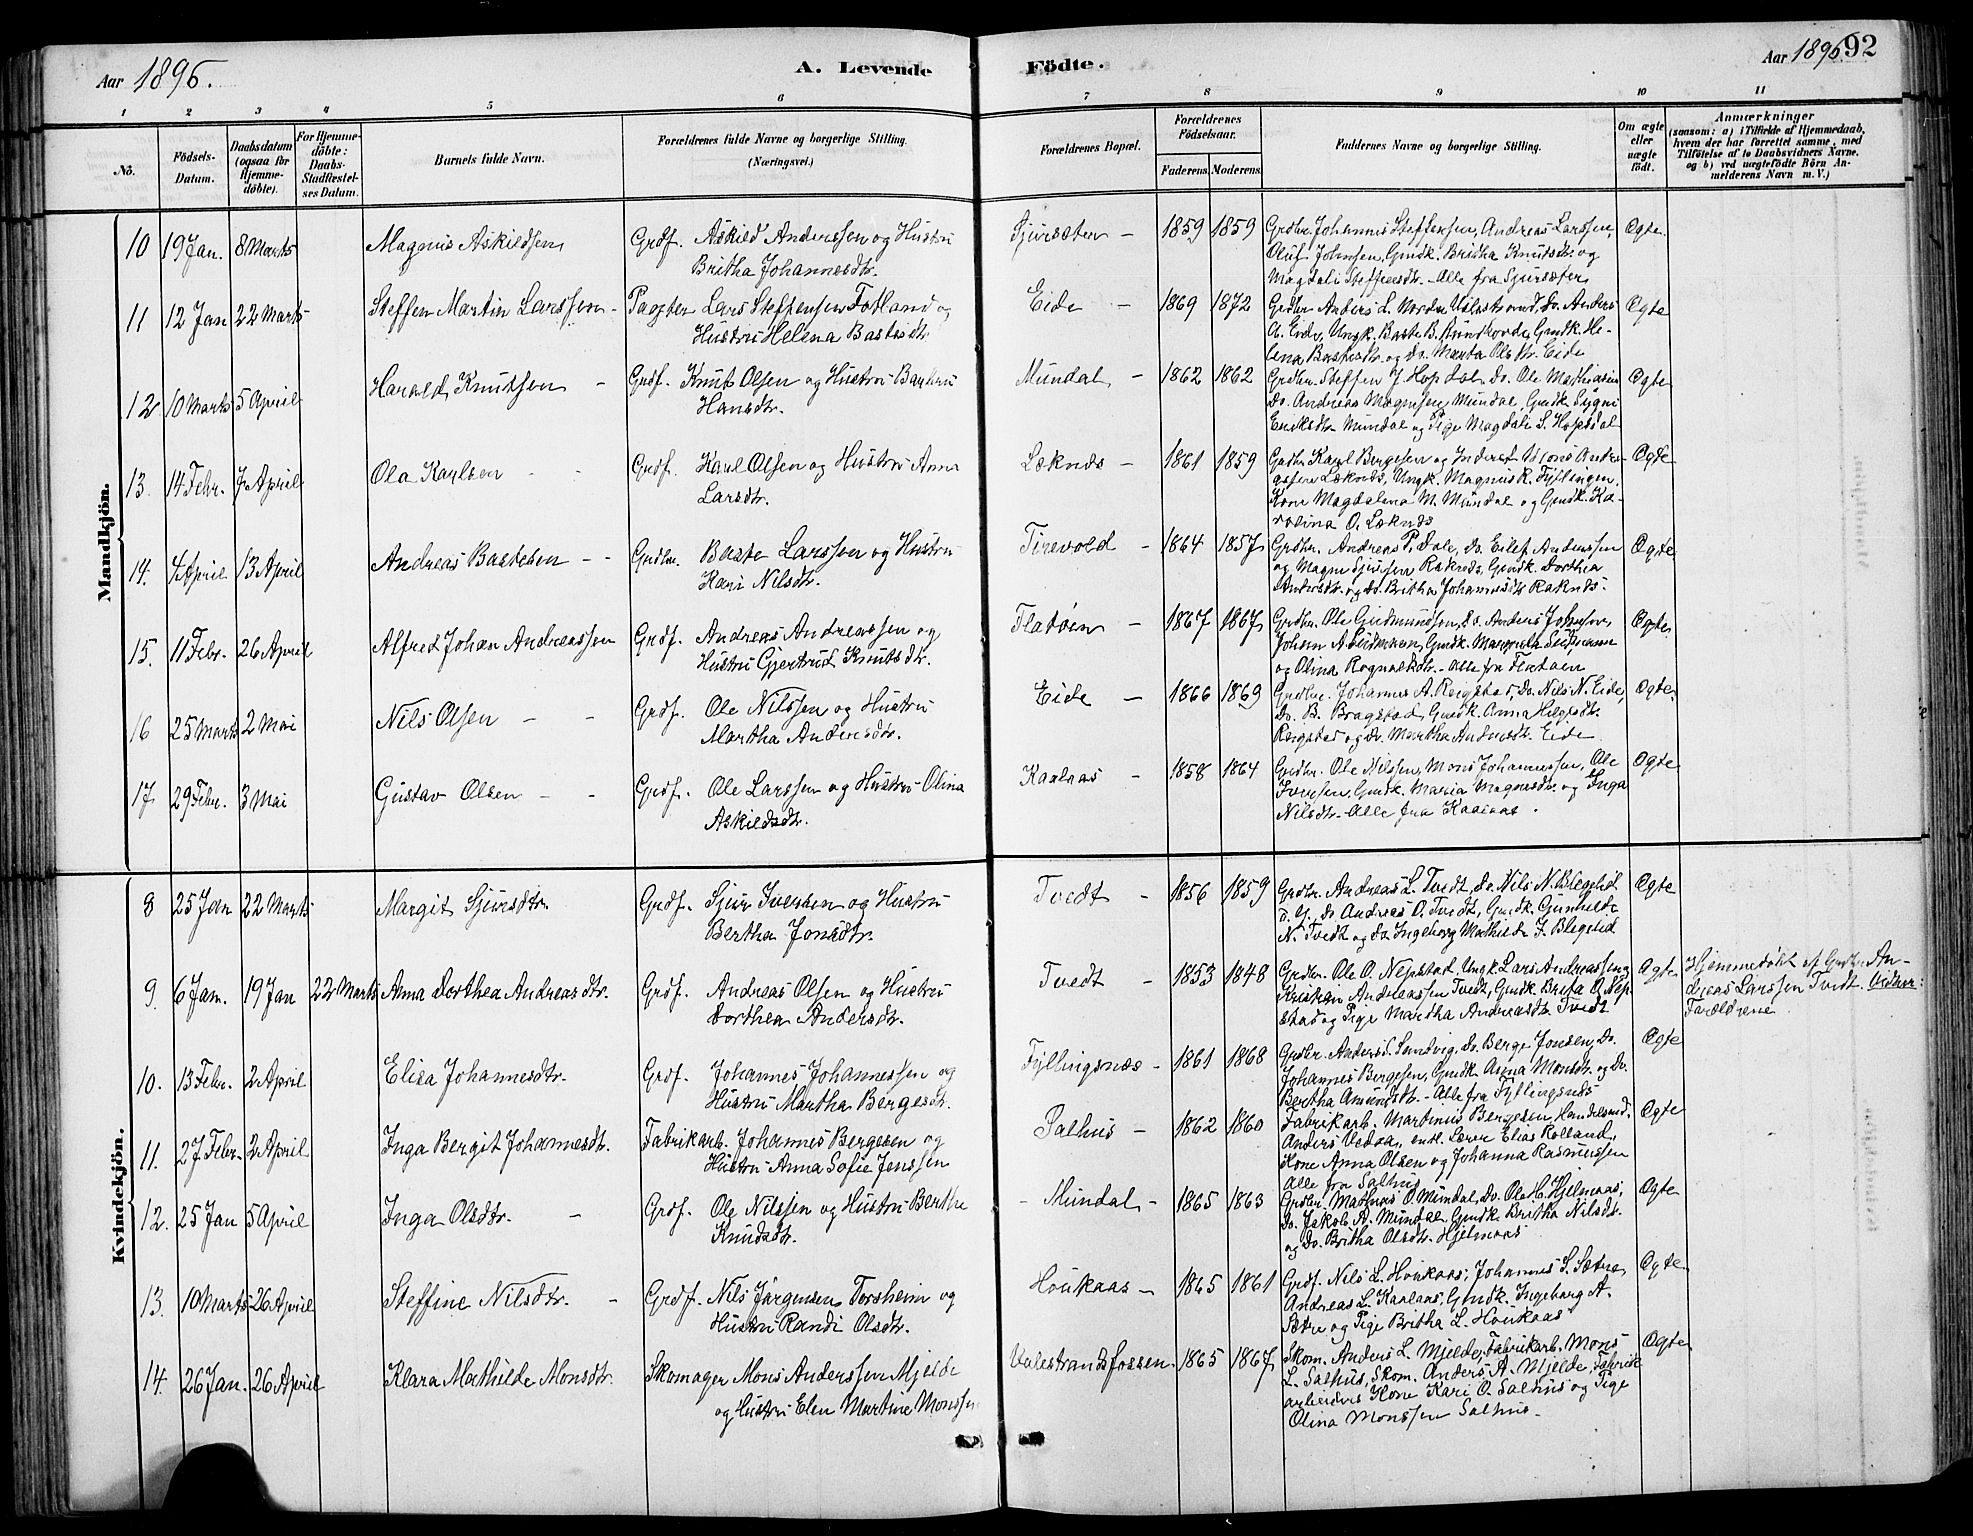 Aar 1896.
A. Levende
Födte.
Aar 1896.
92
1 2 3 4 5 6 7 8 9 10 11
No.
Födsels-Datum.
Daabsdatum (ogsaa for Hjemmedöbte).
For Hjemmedöbte: Daabs-Stadfæstelses Datum.
Barnets fulde Navn.
Forældrenes fulde Navne og borgerlige Stilling. (Næringsvei.)
Forældrenes Bopæl.
Forældrenes Födselsaar.
Faderens. Moderens.
Faddernes Navne og borgerlige Stilling.
Om ægte eller uægte födt.
Anmærkninger
(saasom: a) i Tilfælde af Hjemmedaab, hvem der har forrettet samme, med Tilföielse af to Daabsvidners Navne, og b) ved uægtefödte Börn Anmelderens Navn m. V.)
Mandkjön.
10 19 Jan. 8 Marts Magnus Askildsen Grdf. Askild Anderssen og Hustru
Britha Johannesdtr.
Sjursæter – 1859 1859 Grdbr. Johannes Steffensen, Andreas Larssen,
Oluf Johnsen, Gmdk. Britha Knutsdtr. og
Magdali Steffensdtr. – Alle fra Sjursæter
Ægte
11 12 Jan 22 Marts Steffen Martin Larssen – Pagter Lars Steffensen Fotland og
Hustru Helena Bastesdtr.
Eide – 1869 1872 Grdbr. Anders L. Valestrand, Do. Anders
A. Eide, Ungk. Baste B. Gmdk. He-
lena Bastesdtr. og Do. Marta Olsdtr. Eide
Ægte
12 10 Marts 5 April Harald Knutsen – Grdf. Knut Olsen og Hustru
Hansdtr.
Mundal – 1862 1862 Grdbr. Steffen J. Hopsdal, Do. Ole
Do. Andreas Magnesen Mundal, Gmdk. Sygni
Eriksdtr. Mundal og Pige Magdali S. Hopsdal
Ægte
13. 14 Febr. 7 April Ola Karlsen – – Grdf. Karl Olsen og Hustru Anna
Larsdtr.
Læknes – 1861 1859 Grdbr. Karl Bergesen og Mons
Læknes, Ungk. Magnus R. Fyllingen,
Kone Magdalena M. Mundal og Gmdk. Ka-
rolina O. Læknes
Ægte
14. 4 April 13 April Andreas Bastesen – – Grdbr. Baste Larssen og Hustru
Kari Nilsdtr.
Tirevold – 1864 1857 Grdbr. Andreas P. Dale, Do. Eilef Anderssen
og Magne Sjursen Raknes, Gmdk. Dorthea
Andersdtr. og Do. Britha Johannesdtr. Raknes.
Ægte
15. 11 Febr. 26 April Alfred Johan Andreassen Grdf. Andreas Andreassen og
Hustru Gjertrud Knutsdtr.
Flatöen – 1867 1867 Grdbr. Ole Gudmundsen, Do. Anders Johnsen,
Johan A. Gmdk.
og Olina Rognaldsdtr. – Alle fra Flatöen
Ægte
16 25 Marts 2 Mai Nils Olsen – – Grdf. Ole Nilssen og Hustru
Martha Andersdtr.
Eide – 1866 1869 Grdbr. Johannes A. Reigstad, Do. Nils N. Eide,
Do. B. Bragstad, Gmdk. Anna Helgesdtr.
Reigstad og Do. Martha Andersdtr. Eide
Ægte
17 29 Febr. 3 Mai Gustav Olsen – – Grdf. Ole Larssen og Hustru Olina
Askildsdtr.
Kaalaas – 1858 1864 Grdbr. Ole Nilssen, Mons Johannessen, Ole
Iversen, Gmdk. Maria Magnesdtr. og Inga
Nilsdtr. – Alle fra Kaalaas.
Ægte
Kvindekjön.
8 25 Jan 22 Marts Margit Sjursdtr. Grdf. Sjur Iversen og Hustru
Bertha Jonsdtr.
Tvedt – 1856 1859 Grdbr. Andreas L. Tvedt, Do. Nils N. Blegslid
Do. Andreas O. Tvedt, Gmdk. Gunhilde
N. Tvedt og Do. Ingeborg Mathilde I. Blegslid
Ægte
9. 6 Jan. 19 Jan 22 Marts Anna Dorthea Andreasdtr. Grdf. Andreas Olsen og Hustru
Dorthea Andersdtr.
Tvedt – 1853 1848 Grdbr. Ole O. Nepstad, Ungk. Lars Andreassen og
Kristian Andreassen Tvedt, Gmdk. Brita O. Nep-
stad og Pige Martha Andreasdtr. Tvedt
Ægte
Hjemmedöbt af Grdbr. An-
dreas Larssen Tvedt. Vidner:
Forældrene
10. 13 Febr. 2 April Elisa Johannesdtr. Grdf. Johannes Johannessen og
Hustru Martha Bergesdtr.
Fyllingsnes – 1861 1868 Grdbr. Anders J. Sandvig, Do. Berge Jonsen, Do.
Johannes Bergesen, Gmdk. Anna Monsdtr. og Do.
Bertha Amundsdtr. – Alle fra Fyllingsnes
Ægte
11. 27 Febr. 2 April Inga Bergit Johannesdtr. Fabrikarb. Johannes Bergesen og
Hustru Anna Sofie Jenssen
Salhus – 1862 1860 Fabrikarb. Martinus Bergesen, Handelsmd.
Anders Vedaa, Lærer Elias Rolland,
Kone Anna Olsen og Johanna Rasmussen
Alle fra Salhus
Ægte
12. 25 Jan 5 April Inga Olsdtr. – Grdf. Ole Nilssen og Hustru Berthe
Knudsdtr.
– Mundal – 1865 1863 Grdbr. Mathias O. Mundal, Do. Ole H. Hjelmaas,
Do. Jakob A. Mundal, Gmdk. Britha Nilsdtr.
og Do. Britha Olsdtr. Hjelmaas
Ægte
13. 10 Marts 26 April Steffine Nilsdtr. – Grdf. Nils Jörgensen Torsheim og
Hustru Randi Olsdtr.
Houkaas – 1865 1861 Grdf. Nils L. Houkaas, Johannes S. Sætre,
Andreas L. Kaalaas, Gmdk. Ingeborg A.
Sætre og Pige Britha L. Houkaas
Ægte
14. 26 Jan. 26 April Klara Mathilde Monsdtr. Skomager Mons Anderssen Mjelde
og Hustru Elen Martine Monssen
Valestrandsfossen. 1865 1867 Skom. Anders L. Mjelde, Fabrikarb. Mons
L. Salhus, Skom. Anders A. Mjelde, Fabrik
arbeiders Kone Kari O. Salhus og Pige
Olina Monssen Salhus –
Ægte